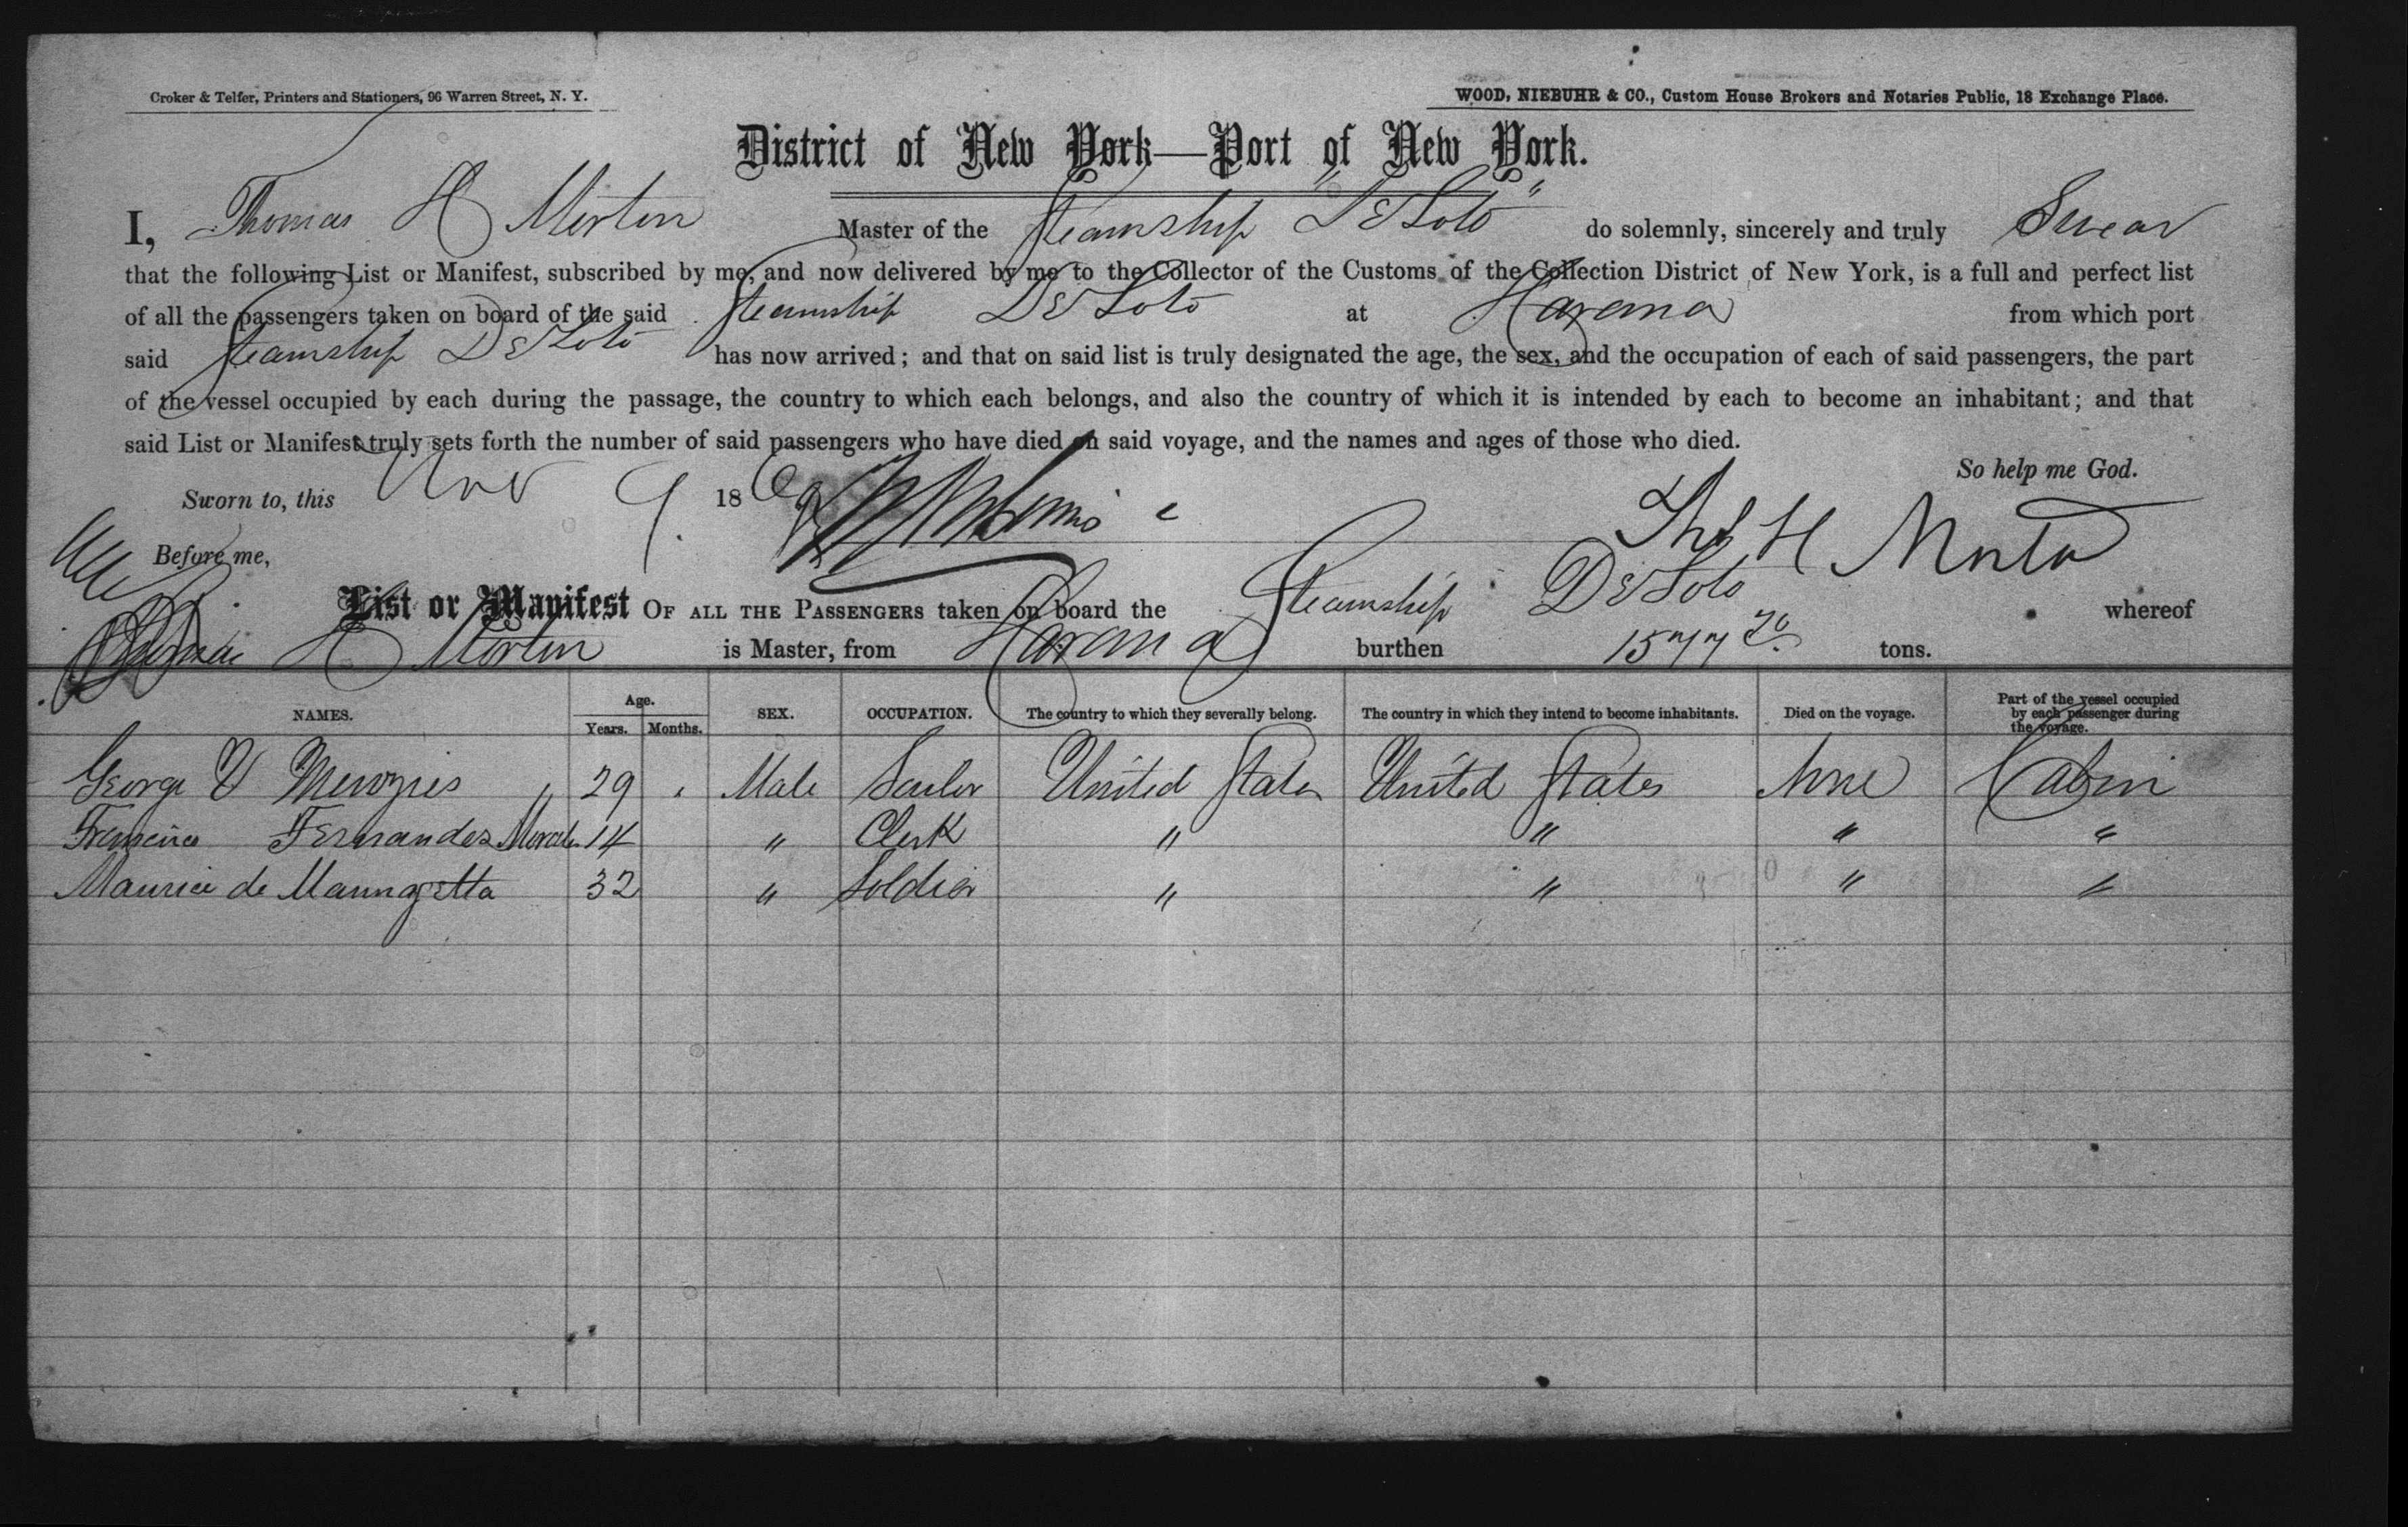 Croker & Telfer, Printers and Stationers, 96 Warren Street, N. Y.
WOOD, NIEBUHR & CO., Custom House Brokers and Notaries Public, 18 Exchange Place.
District of New York—Port of New York.
I, Thomas H Morton Master of the Steamship "De Soto" do solemnly, sincerely and truly Swear
that the following List or Manifest, subscribed by me, and now delivered by me to the Collector of the Customs of the Collection District of New York, is a full and perfect list
of all the passengers taken on board of the said Steamship De Soto at Havana from which port
said Steamship De Soto has now arrived; and that on said list is truly designated the age, the sex, and the occupation of each of said passengers, the part
of the vessel occupied by each during the passage, the country to which each belongs, and also the country of which it is intended by each to become an inhabitant; and that
said List or Manifest truly sets forth the number of said passengers who have died on said voyage, and the names and ages of those who died.
So help me God.
Sworn to, this Nov 9. 1869
Thos H Morton
Before me,
List or Manifest OF ALL THE PASSENGERS taken on board the Steamship De Soto whereof
Thomas H Morton is Master, from Havana burthen 1577 20 tons.
NAMES. Age. Years. Months. SEX. OCCUPATION. The country to which they severally belong. The country in which they intend to become inhabitants. Died on the voyage. Part of the vessel occupied by each passenger during the voyage.
George V Menzies 29 Male Sailor United States United States None Cabin
Francisco Fernandez 14 " Clerk " " " "
Maurice de Mannagetta 32 " Soldier " " " "